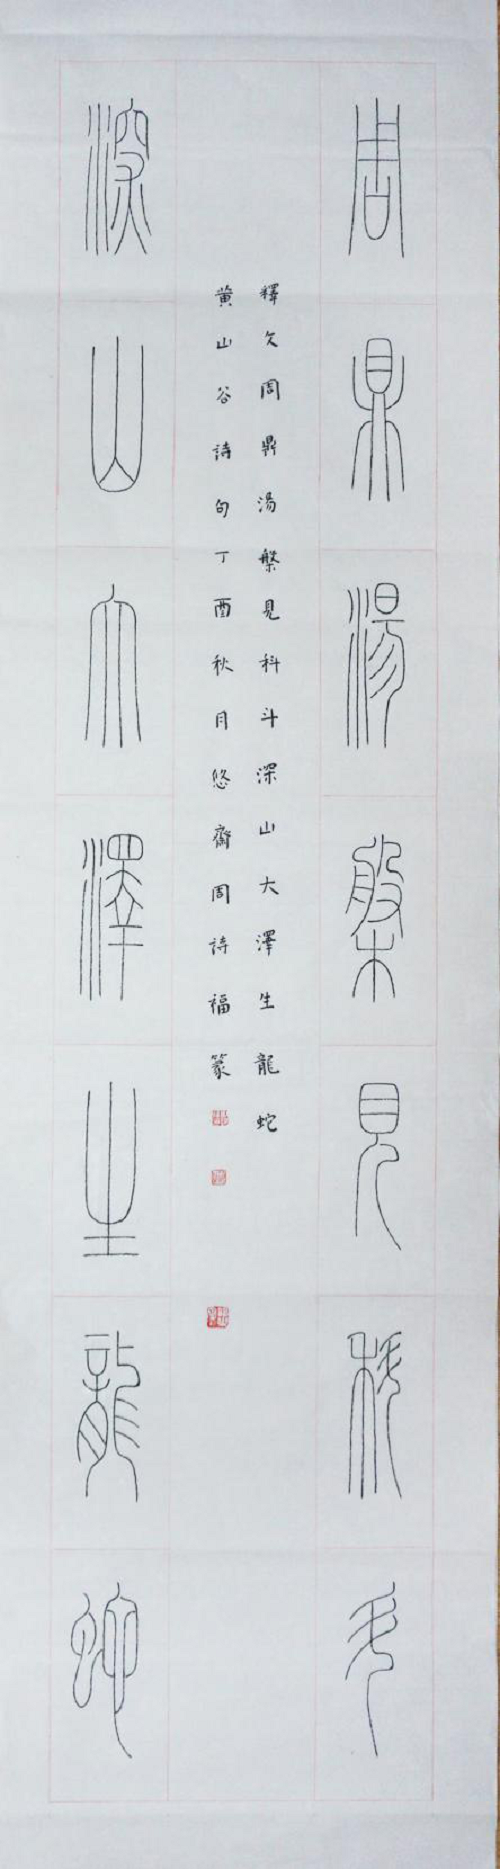 周鼎湯槃見科斗
釋文周鼎湯槃見科斗深山大澤生龍蛇
黄山谷詩句丁酉秋月悠齋周詩福篆
深山大澤生龍蛇